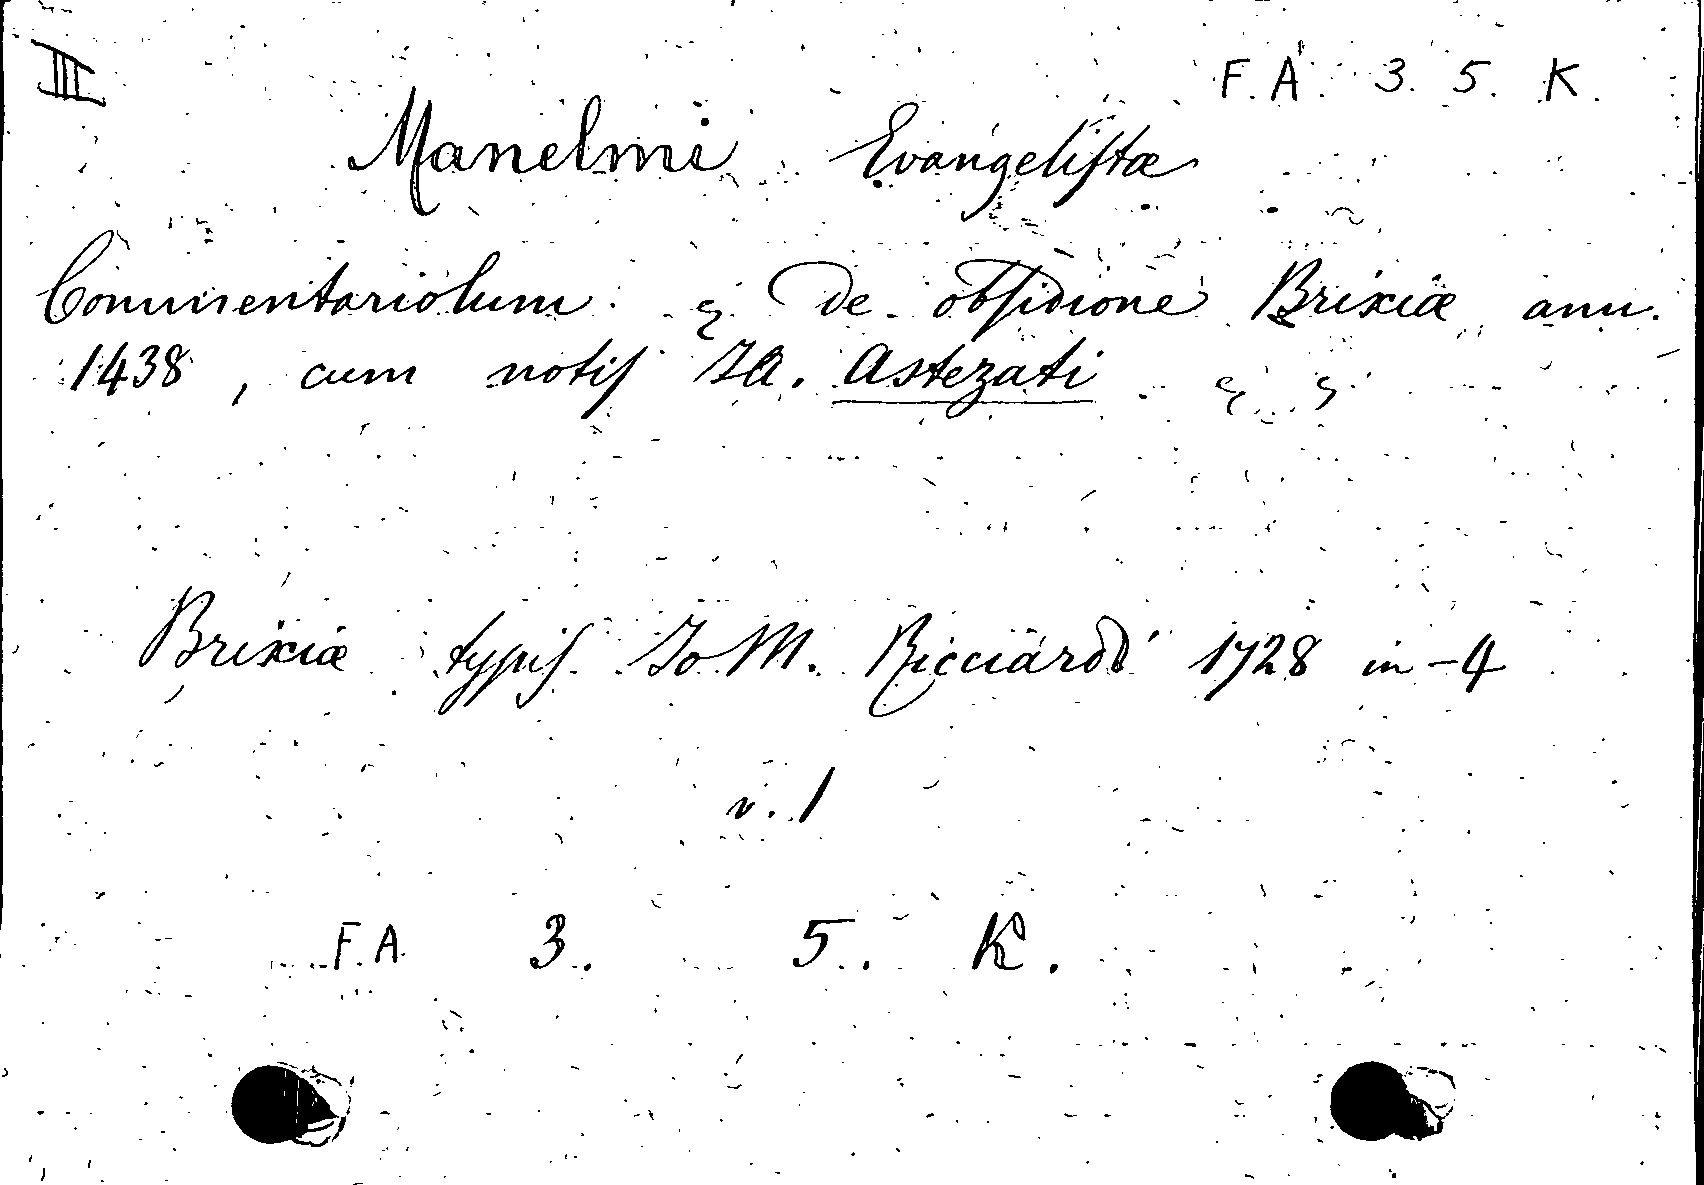 III F. A. 3. 5. K.
Manelmi Evangeliſtæ
Commentariolum de obſidione Brixiæ ann.
1438, cum notiſ Ja. Astezati
Brixiæ typiſ Jo M. Ricciardi 1728 in-4
v. 1
F. A. 3. 5. K.